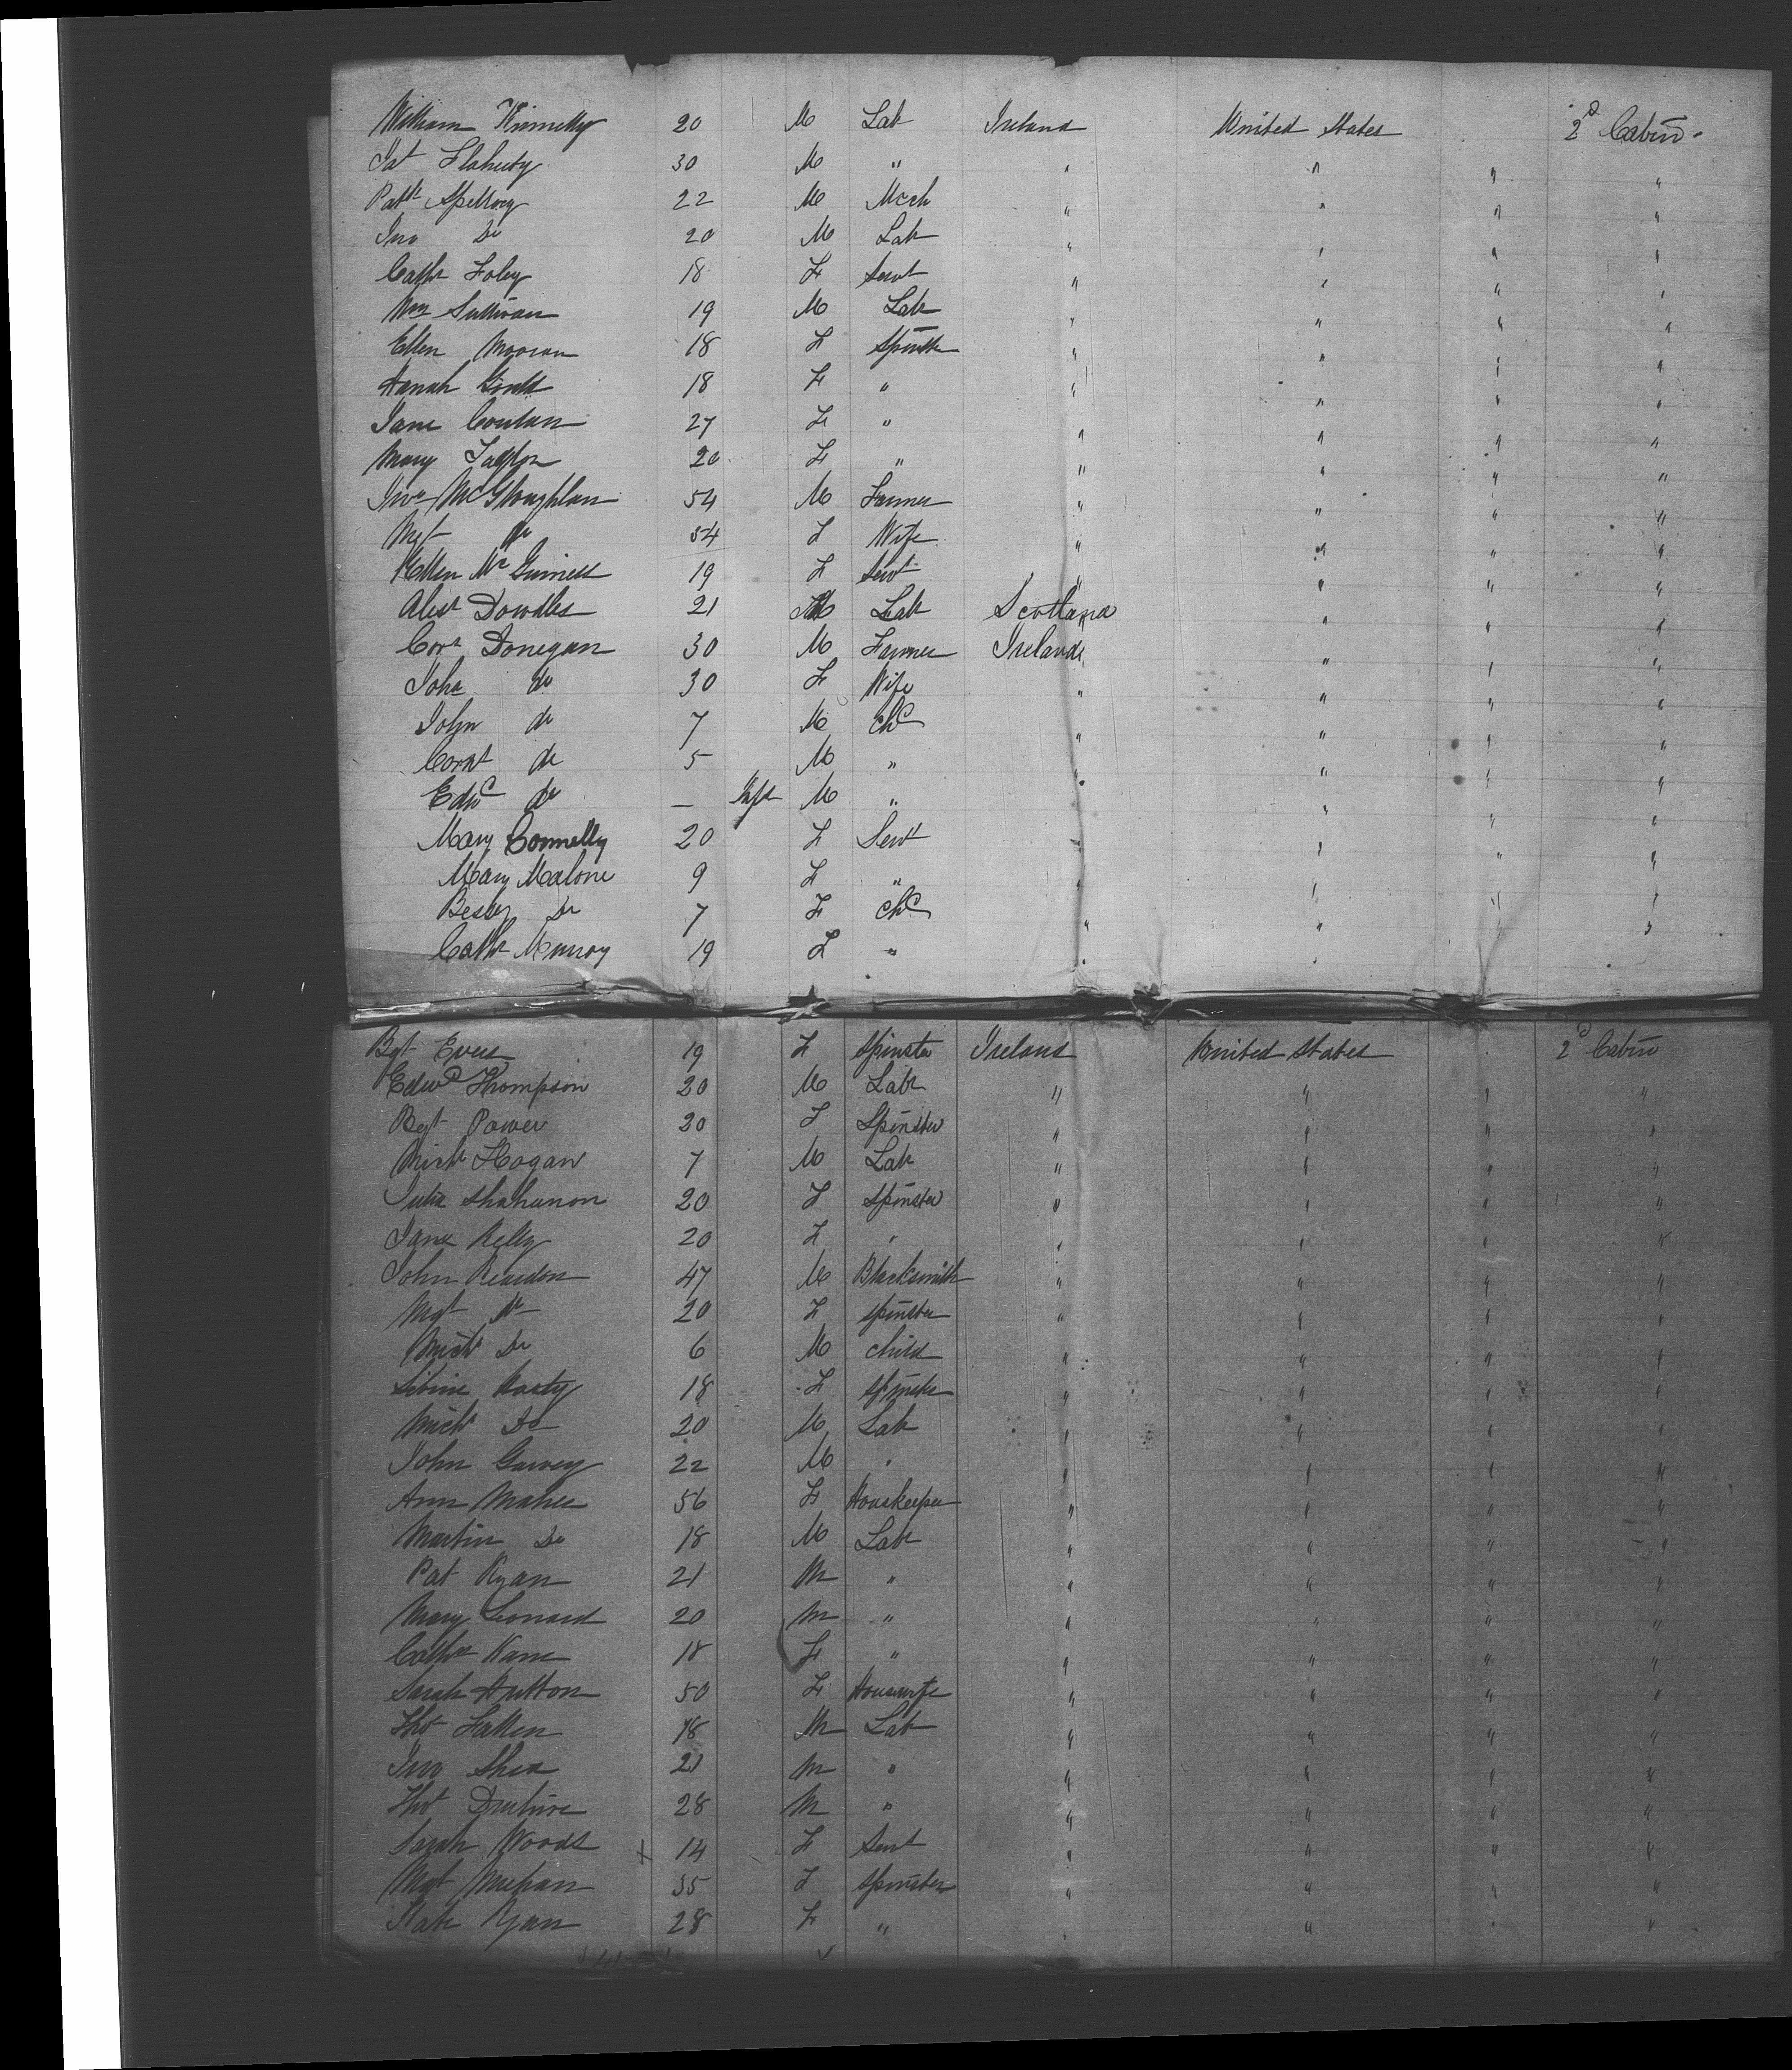 William Kinnelly 20 M Lab Ireland United States 2d Cabin
Pat Flaherty 30 M " " " " "
Patk Spellacy 22 M Mech " " " "
Jno Do 20 M Lab " " " "
Cath Foley 18 F Servt " " " "
Wm Sullivan 19 M Lab " " " "
Ellen 18 F Spinster " " " "
Hanah Gould 18 F " " " " "
Jane 27 F " " " " "
Mary 20 F " " " " "
Jno McGloughlan 54 M Farmer " " " "
Mgt do 54 F Wife " " " "
Ellen McGuiness 19 F Servt " " " "
Alexr Dowdles 21 M Lab Scotland " " "
Corns Donegan 30 M Farmer Ireland " " "
Joha do 30 F Wife " " " "
John do 7 M Chd " " " "
Cornl do 5 M " " " " "
Edwd do — Inft M " " " " "
Mary Connelly 20 F Servt " " " "
Mary Malone 9 F " " " " "
Bessy Do 7 F Chd " " " "
Cathr Murray 19 F " " " " "
Bgt Evers 19 F Spinster Ireland United States 2d Cabin
Edwd Thompson 20 M Labr " " " "
Bgt Power 20 F Spinster " " " "
Michl Hogan 7 M Lab " " " "
Julia Shahanon 20 F Spinster " " " "
Jane Kelly 20 F " " " " "
John Reardon 47 M Blacksmith " " " "
Mgt do 20 F Spinster " " " "
Michl Do 6 M Child " " " "
18 F Spinster " " " "
Michl Do 20 M Lab " " " "
John Garvey 22 M " " " " "
Ann Maher 56 F Houskeeper " " " "
Martin Do 18 M Lab " " " "
Pat Ryan 21 M " " " " "
Mary Leonard 20 M " " " " "
Cathr Kane 18 F " " " " "
Sarah Hutton 50 F Housewife " " " "
Thos Fallen 18 M Lab " " " "
Jno Shea 21 M " " " " "
Thos 28 M " " " " "
Sarah Woods x 14 F Servt " " " "
Mgt Meehan 35 F Spinster " " " "
Kate Ryan 28 F " " " " "